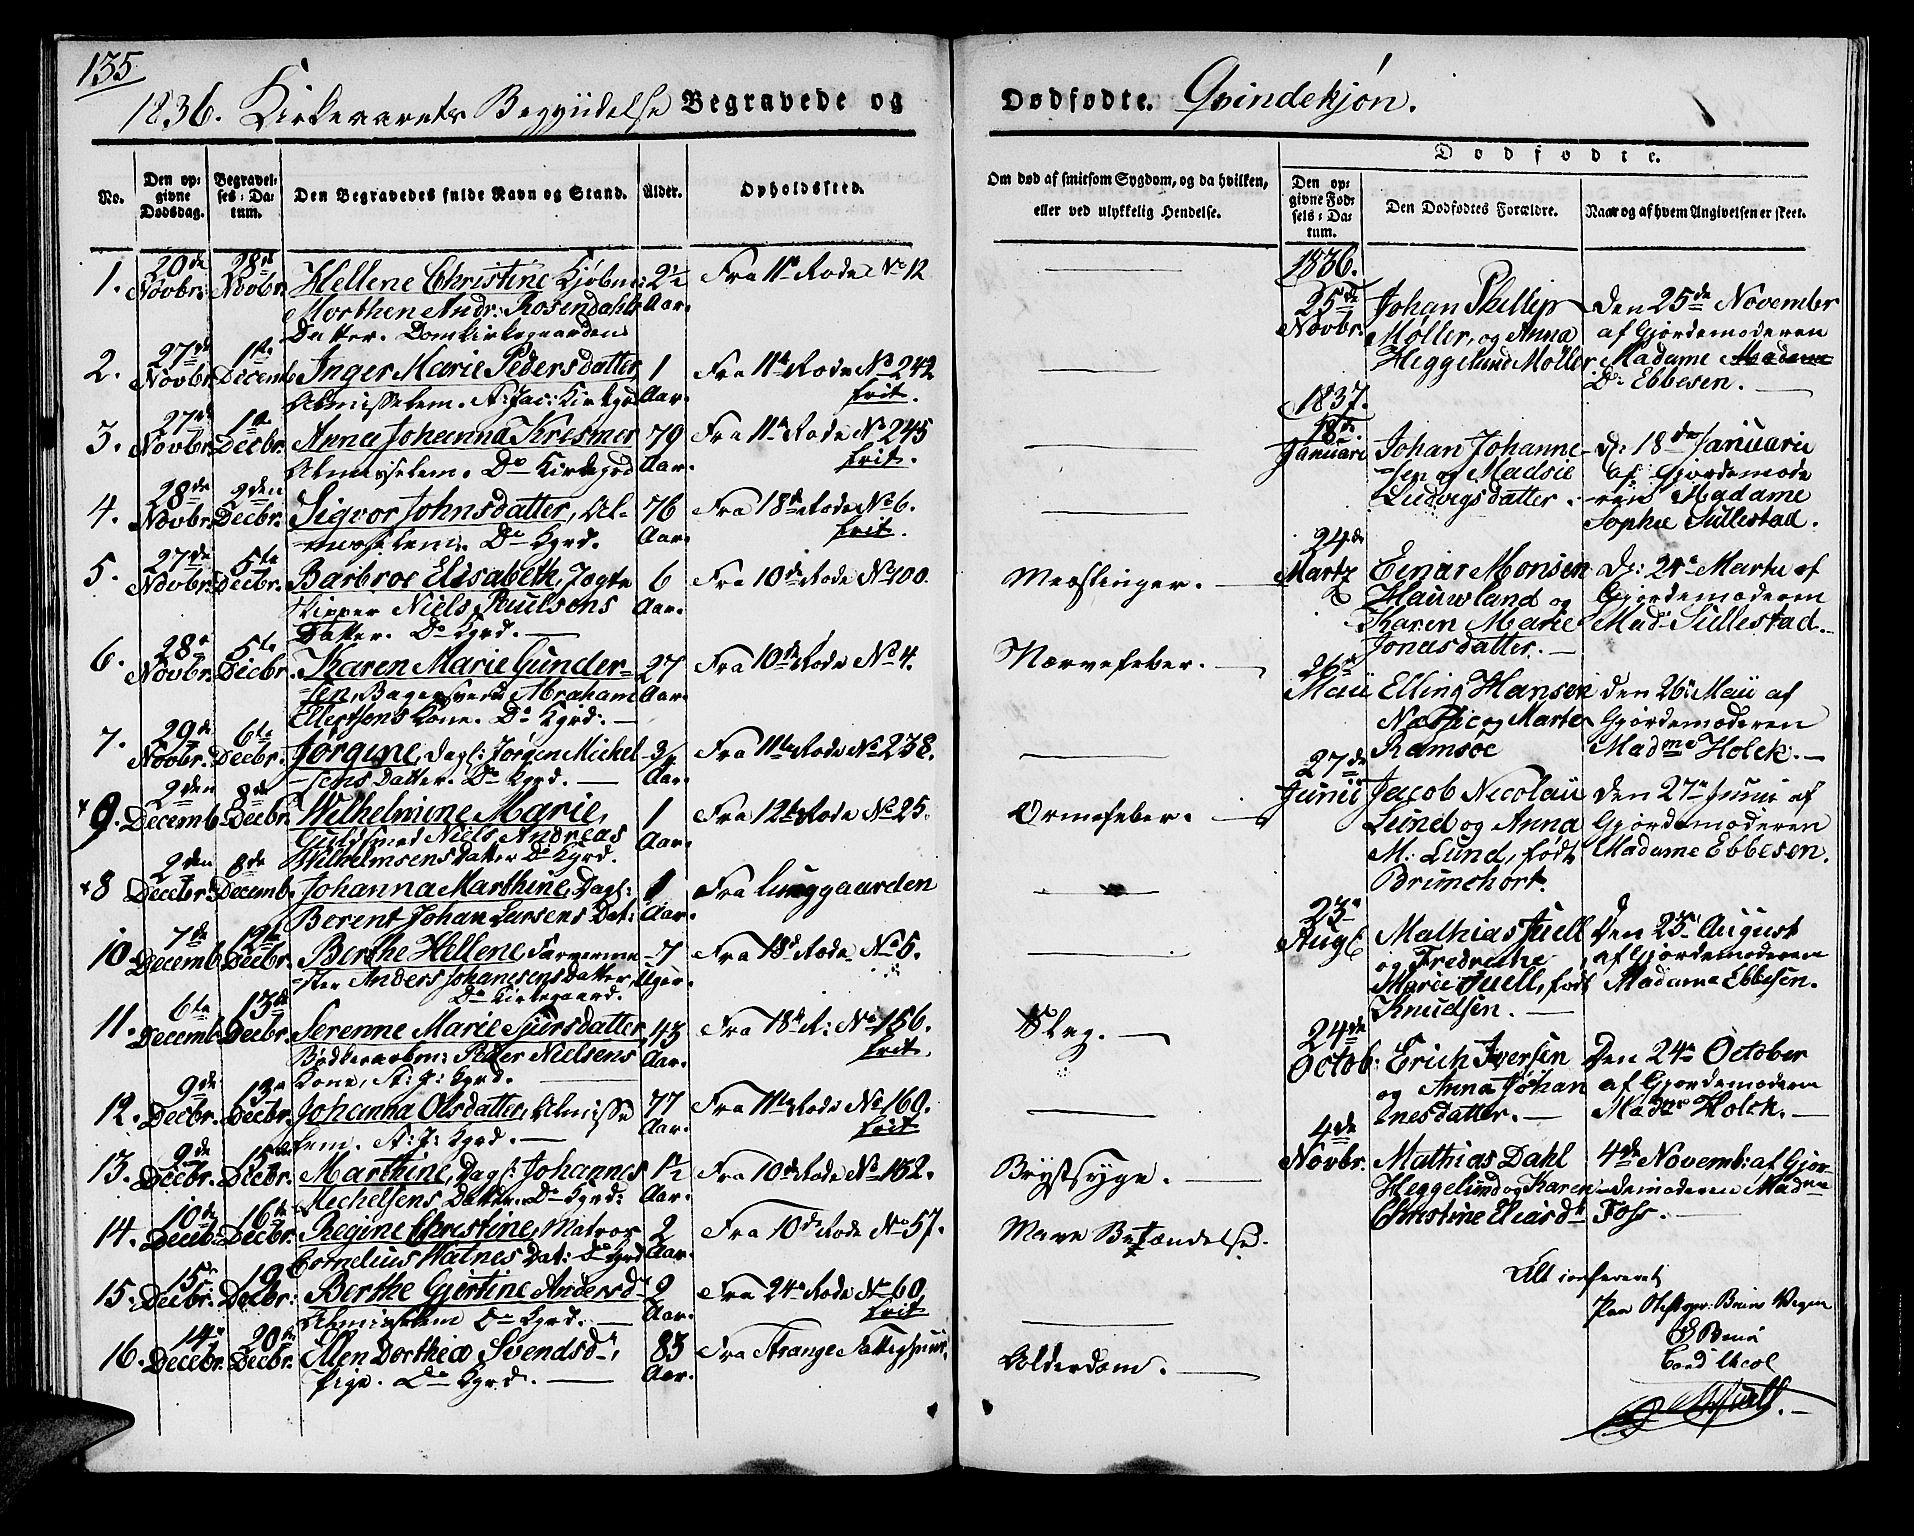 135
1836. Kirkeaarets Begyndelse Begravede og Dødfødte. Qvindekjøn.
No.
Den op-
givne
Dødsdag.
Begravel-
ses-Da-
tum.
Den Begravedes fulde Navn og Stand.
Alder.
Opholdssted.
Om død af smitsom Sygdom, og da hvilken,
eller ved ulykkelig Hendelse.
Dødfødte.
Den op-
givne Fød-
sels-Da-
tum.
Den Dødfødtes Forældre.
Naar og af hvem Angivelsen er skeet.
1. 20de Novbr. 28de Novbr. Hellene Christine Kjøbm: 2½ Aar. Fra 11te Rode No 12
Morthen Andr: Rosendahls
Datter. Domkirkegaarden
2. 27de Novbr. 1te Decemb. Inger Marie Pedersdatter 1 Aar. Fra 11te Rode No 242
Almisselem. St: Jac: Kirkgrd frit.
3. 27de Novbr. 1te Decbr. Anna Johanna Kresmer 79 Aar. Fra 11te Rode No 245
Almisselem. Do Kirkegrd frit.
4. 28de Novbr. 2den Decbr. Sigvor Johnsdatter, Al- 76 Aar. Fra 18de Rode No 6.
misselem. Do Kgrd. frit.
5. 27de Novbr. 5te Decbr. Barbroe Elisabeth, Jagte 6 Aar. Fra 10de Rode No 100. Mæslinger.
skipper Niels Poulsens
Datter. Do Kgrd.
6. 28de Novbr. 5te Decbr. Karen Marie Gunder- 27 Aar. Fra 10de Rode No 4. Nærvefeber.
sen, Bagersvend Abraham
Ellertsens Kone. Do Kgrd.
7. 29de Novbr. 6te Decbr. Jørgine, Dagl: Jørgen Michel- ¾ Aar. Fra 11te Rode No 238.
sens Datter. Do Kgrd.
+ 9. 2den Decemb. 8de Decbr. Wilhelmine Marie, 1 Aar. Fra 12te Rode No 25. Ormefeber.
Guldsmed Niels Andreas
Wilhelmsens Datter Do Kgrd.
+ 8 2den Decbr. 8de Decemb. Johanna Marthine, Dagl: 1 Aar. Fra Lunggaarden
Berent Johan Larsens Dat:
10. 7de Decemb. 12te Decbr. Berthe Hellene, Farverme- 7 Uger. Fra 18de Rode No 5.
ster Anders Johannesens Datter,
Do Kirkegaard.
11. 6te Decemb. 13de Decbr. Serenne Marie Sjursdatter 43 Aar. Fra 18de R: No 156. Slag.
Bødkerarbm: Peder Nielsens frit.
Kone, St: J: Kgrd.
12. 9de Decbr. 13de Decbr. Johanna Olsdatter, Almisse 77 Aar. Fra 11te Rode No 160.
lem. St: J: Kgrd. frit
13. 9de Decbr. 15de Decbr. Marthine, Dagl: Johannes 1½ Aar. Fra 10de Rode No 152. Brystsyge.
Mechelsens Datter Do Kgrd:
14. 10de Decbr. 16te Decbr. Regine Christine, Matros 2 Aar. Fra 10de Rode No 57. Mave Betændelse.
Cornelius Watnes Dat: Do Kgrd
15. 15de Decbr. 19de Decbr: Berthe Gjertine Andersd 2 Aar. Fra 24de Rode No 60,
Almisselem Do Kgrd. frit
16. 14de Decbr. 20de Decbr. Ellen Dorthea Svendsdr, 83 Aar. Fra Strange Fattighuus. Alderdom.
Pige. Do Kgrd.
1836.
25de Novbr. Johan Phillip Den 25de November
Møller, og Anna af Gjordemoderen
Heggelund Møller Madame Madame
D: Ebbesen.
1837.
18de Januari Johan Johanne- D: 18de Januarii
sen og Madsie af Gjordemode
Ludvigsdatter. ren Madame
Sophie Sillestad.
24de Martz Einar Monsen D: 24de Martii af
Hauwland og Gjordemoderen
Karen Marie Mad: Sillestad.
Jonasdatter.
26de Maii Elling Hansen Den 26de Maii af
og Marte Gjordemoderen
Ramsøe Madme Holck.
27de Junii Jacob Nicolaii Den 27de Junii af
Lund og Anna Gjordemoderen
M: Lund, født Madame Ebbesen.
Brunchorst.
23de Aug: Mathias Juell Den 23de August
og Fredriche af Gjordemoderen
Marie Juell, født Madame Ebbesen.
Knudsen.
24de Octob: Erich Iversen Den 24de October
og Anna Johan af Gjordemoderen
nesdatter. Madme Holck.
4de Novbr. Mathias Dahl 4de Novemb: af Gjor-
Heggelund og Karen demoderen Madme
Christine Eliasdr Foss.
Alt confereret